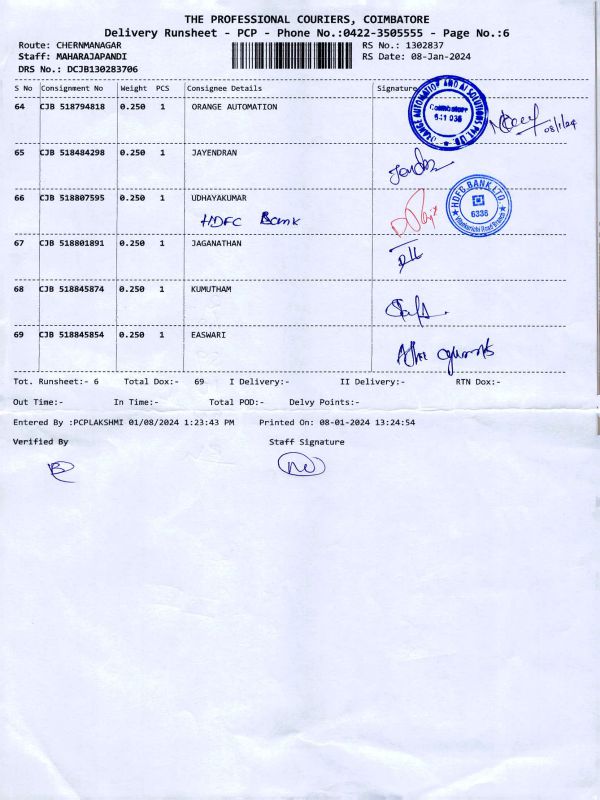 THE PROFESSIONAL COURIERS, COIMBATORE
Delivery Runsheet - PCP - Phone No.:0422-3505555 - Page No.:6
Route: CHERNMANAGAR RS No.: 1302837
Staff: MAHARAJAPANDI RS Date: 08-Jan-2024
DRS No.: DCJB130283706
S No Consignment No Weight PCS Consignee Details Signature
64 CJB 518794818 0.250 1 ORANGE AUTOMATION
ORANGE AUTOMATION AND AI SOLUTIONS PVT. LTD.
Coimbatore
641 035
08/1/24
65 CJB 518484298 0.250 1 JAYENDRAN
66 CJB 518807595 0.250 1 UDHAYAKUMAR
HDFC Bank
HDFC BANK LTD.
6336
67 CJB 518801891 0.250 1 JAGANATHAN
68 CJB 518845874 0.250 1 KUMUTHAM
69 CJB 518845854 0.250 1 EASWARI
Tot. Runsheet:- 6 Total Dox:- 69 I Delivery:- II Delivery:- RTN Dox:-
Out Time:- In Time:- Total POD:- Delvy Points:-
Entered By :PCPLAKSHMI 01/08/2024 1:23:43 PM Printed On: 08-01-2024 13:24:54
Verified By Staff Signature